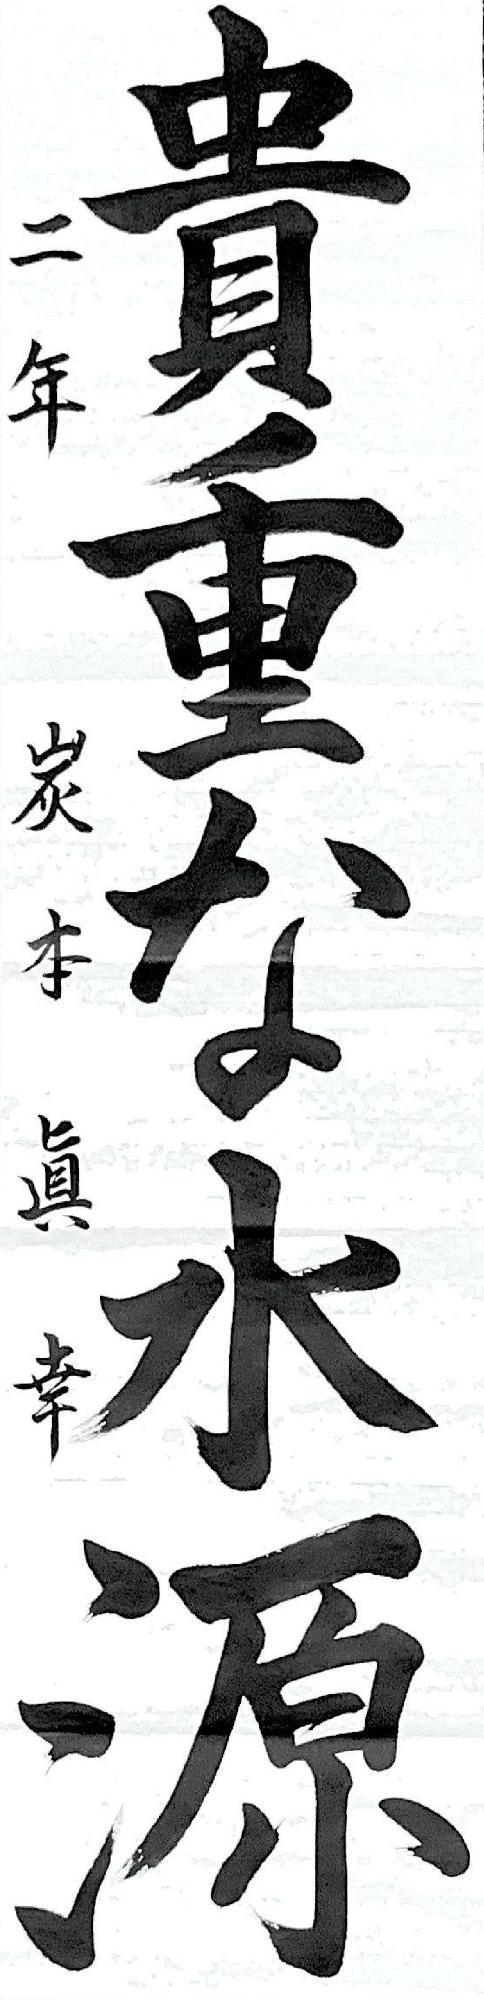 貴重な水源
二年 炭本 眞幸